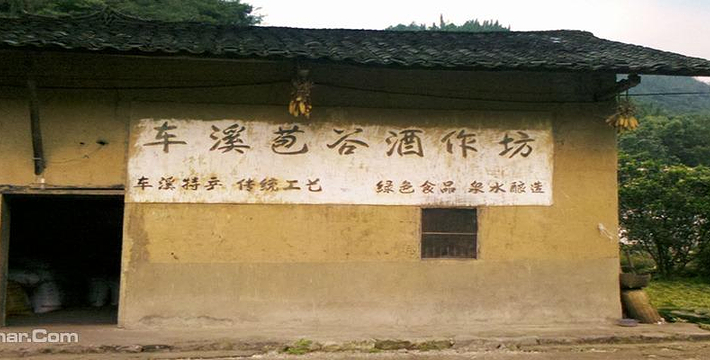 车溪苞谷酒作坊
车溪特产 传统工艺 绿色食品 泉水酿造
nar.Com